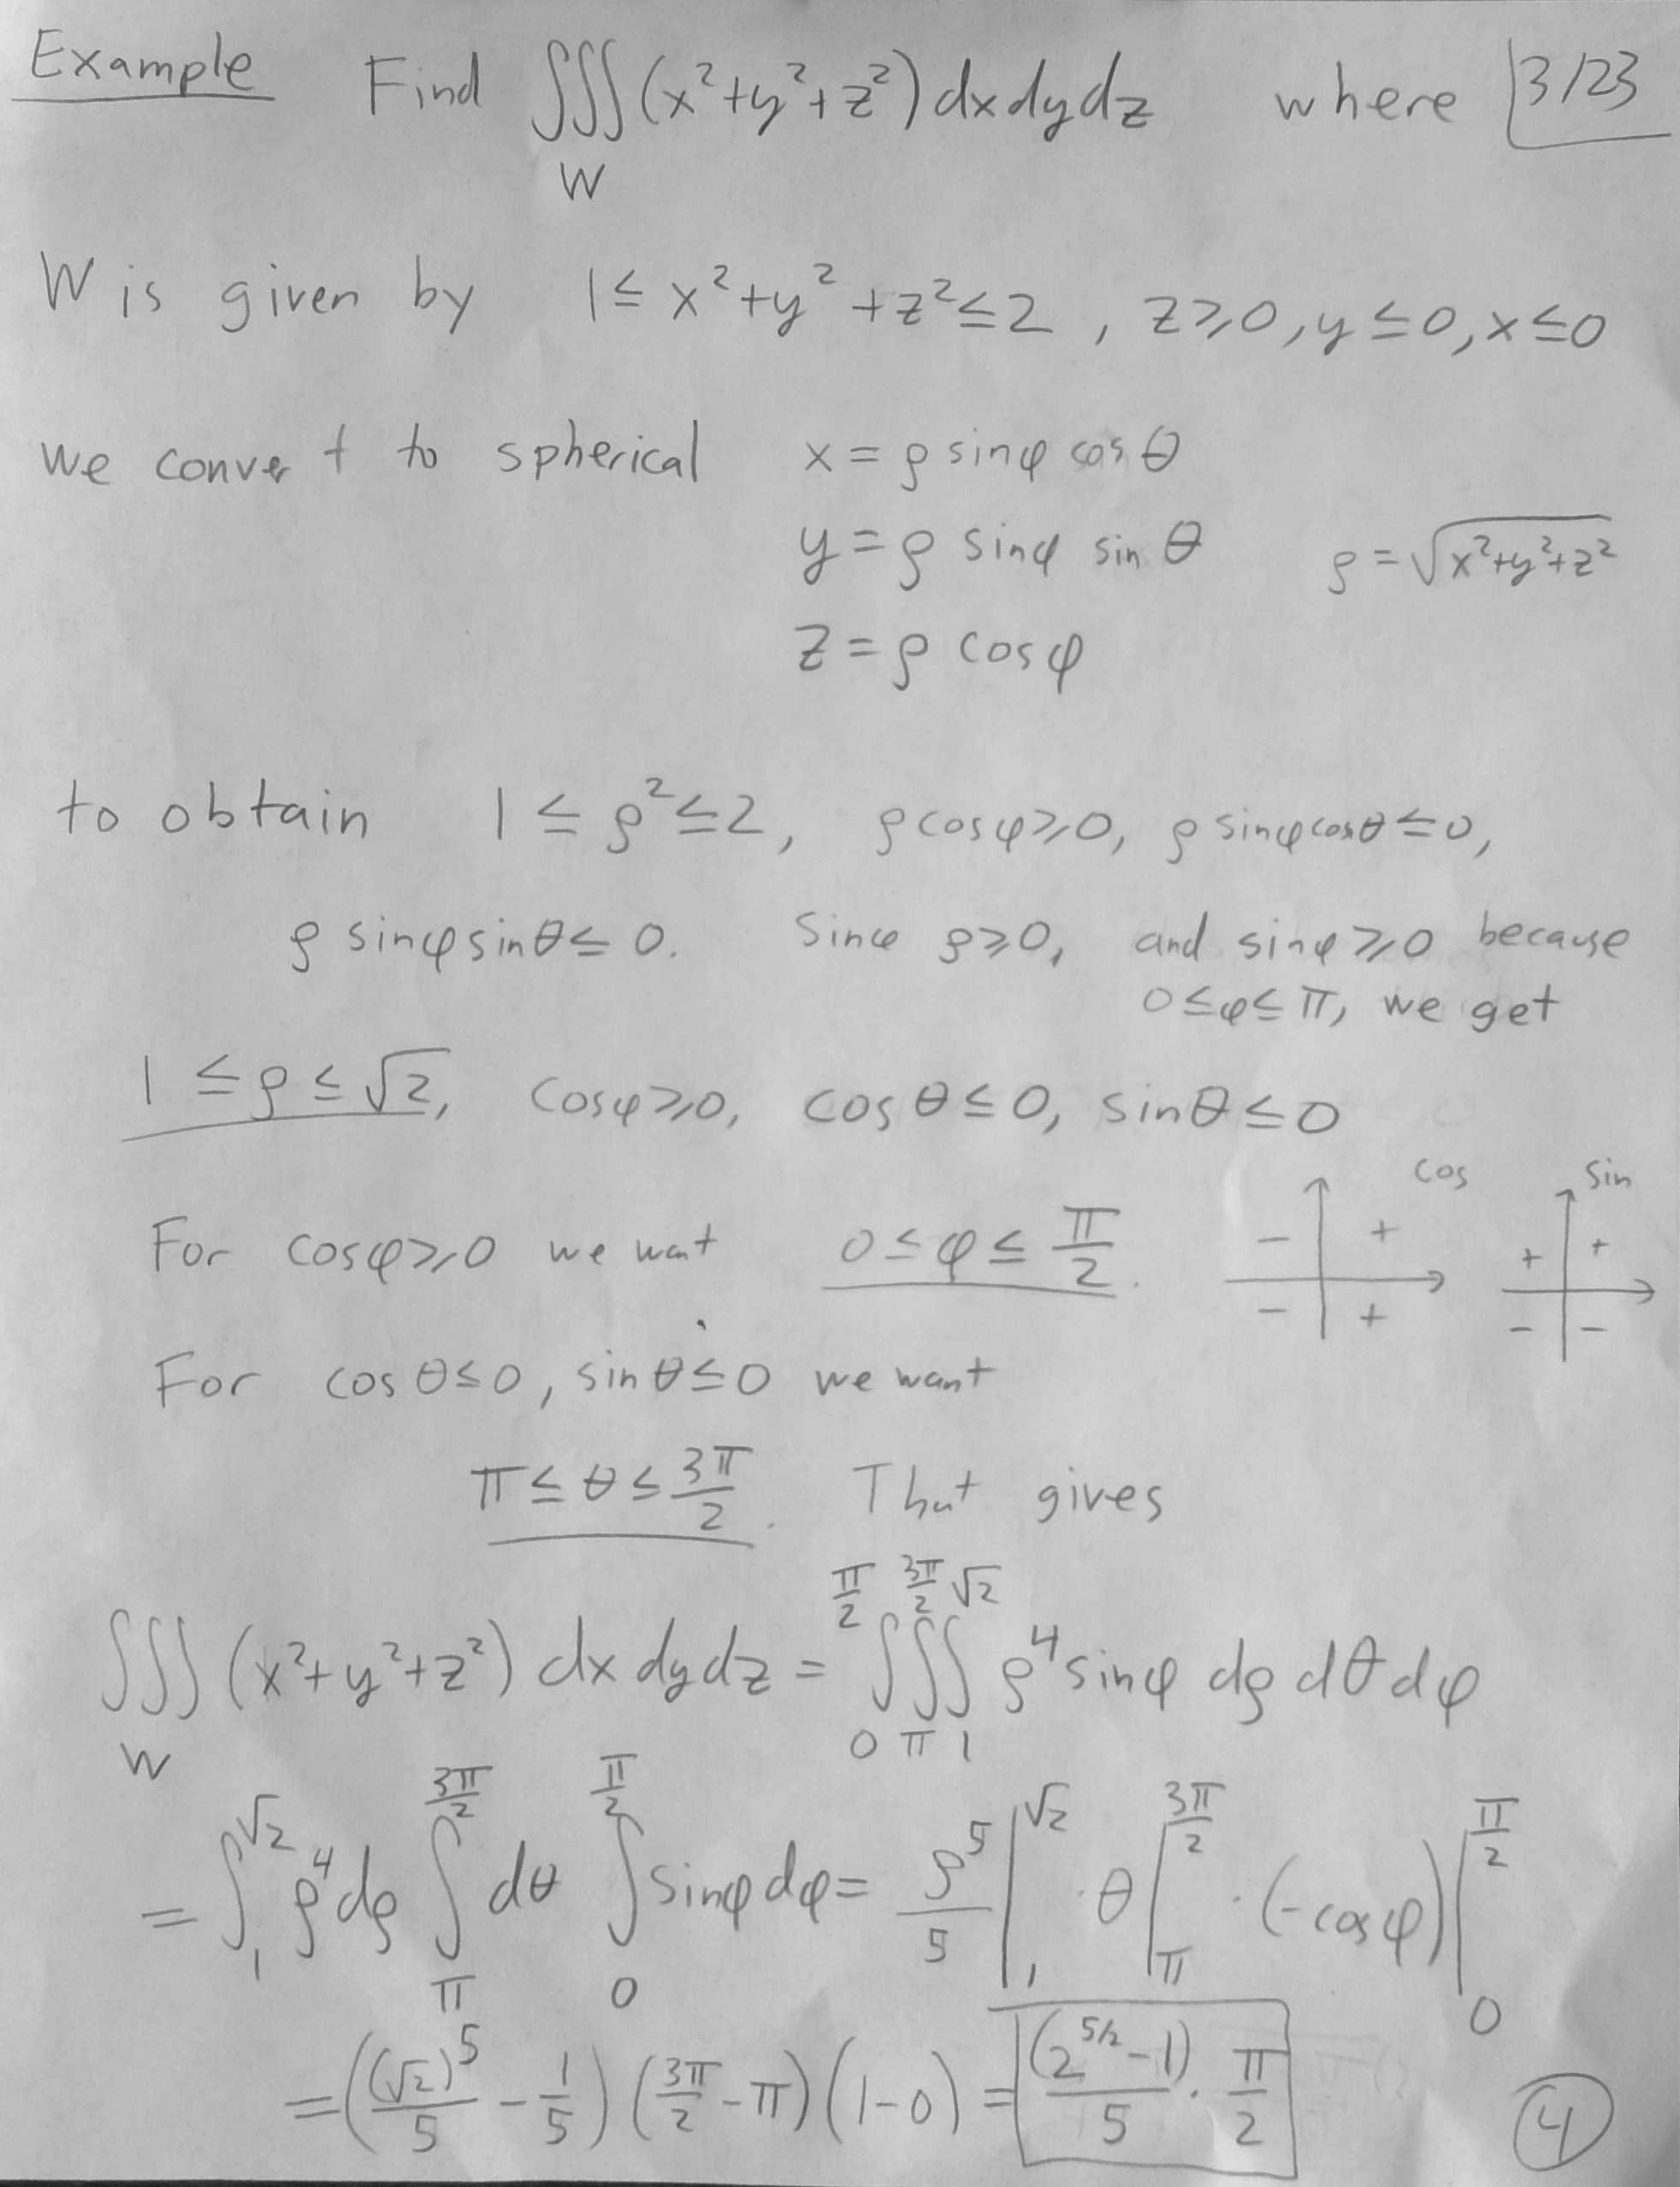 Example Find ∭_W (x²+y²+z²) dxdydz where 3/23
W is given by 1 ≤ x²+y²+z² ≤ 2, z ≥ 0, y ≤ 0, x ≤ 0
we convert to spherical x = ρ sinφ cos θ
y = ρ sinφ sin θ ρ = √(x²+y²+z²)
z = ρ cosφ
to obtain 1 ≤ ρ² ≤ 2, ρcosφ ≥ 0, ρ sinφcosθ ≤ 0,
ρ sinφsinθ ≤ 0. Since ρ ≥ 0, and sinφ ≥ 0 because
0 ≤ φ ≤ π, we get
1 ≤ ρ ≤ √2, cosφ ≥ 0, cos θ ≤ 0, sinθ ≤ 0
cos sin
For cosφ ≥ 0 we want 0 ≤ φ ≤ π/2. − + + +
− + − −
For cos θ ≤ 0, sin θ ≤ 0 we want
π ≤ θ ≤ 3π/2. That gives
∭_W (x²+y²+z²) dx dydz = ∫_0^{π/2} ∫_π^{3π/2} ∫_1^{√2} ρ⁴ sinφ dρ dθ dφ
= ∫_1^{√2} ρ⁴dρ ∫_π^{3π/2} dθ ∫_0^{π/2} sinφ dφ = ρ⁵/5 |_1^{√2} · θ |_π^{3π/2} · (−cosφ) |_0^{π/2}
= ((√2)⁵/5 − 1/5) (3π/2 − π) (1−0) = (2^{5/2} − 1)/5 · π/2
4